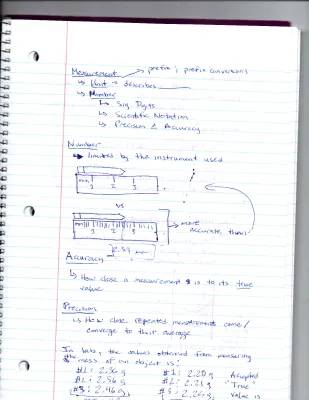 Measurement → prefix; prefix conversions
↳ Unit → describes
↳ Number
↳ Sig Digits
↳ Scientific Notation
↳ Precision & Accuracy
Number
↳ limited by the instrument used
mm 1 2
vs
mm 1 2 3
more
accurate than
Accuracy
↳ How close a measurement is to its true
value
Precision
↳ How close repeated measurements come/
converge to their average
In lab, the values obtained from measuring
the mass of an object is:
#1: 2.36 g #1: 2.20 g Accepted
#2: 2.56 g #2: 2.21 g "True"
#3: 2.46 g value is